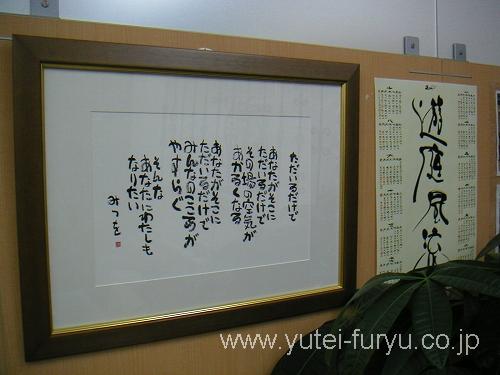 ただいるだけで
あなたがそこに
ただいるだけで
その場の空気が
あかるくなる
あなたがそこに
ただいるだけで
みんなのこころが
やすらぐ
そんな
あなたにわたしも
なりたい
みつを
遊庭風流
www.yutei-furyu.co.jp